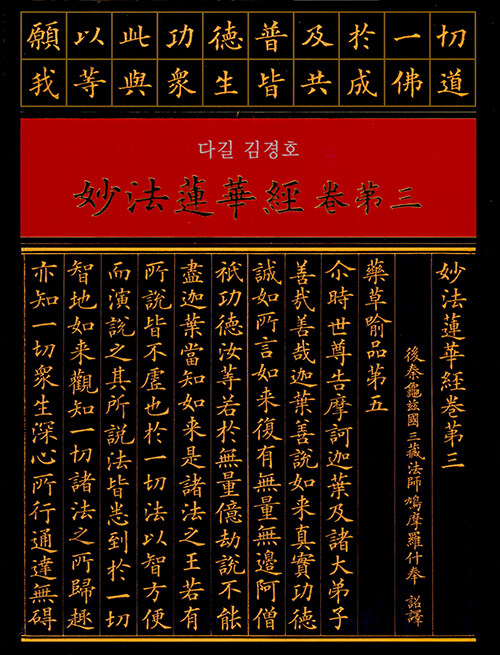 願以此功德普及於一切
我等與衆生皆共成佛道
다길 김경호
妙法蓮華經 卷第三
妙法蓮華經卷第三
後秦龜玆國三藏法師鳩摩羅什奉 詔譯
藥草喻品第五
尒時世尊告摩訶迦葉及諸大弟子
善哉善哉迦葉善說如来真實功德
誠如所言如来復有無量無邊阿僧
祇功德汝等若於無量億劫說不能
盡迦葉當知如来是諸法之王若有
所說皆不虛也於一切法以智方便
而演說之其所說法皆悉到於一切
智地如来觀知一切諸法之所歸趣
亦知一切衆生深心所行通達無碍